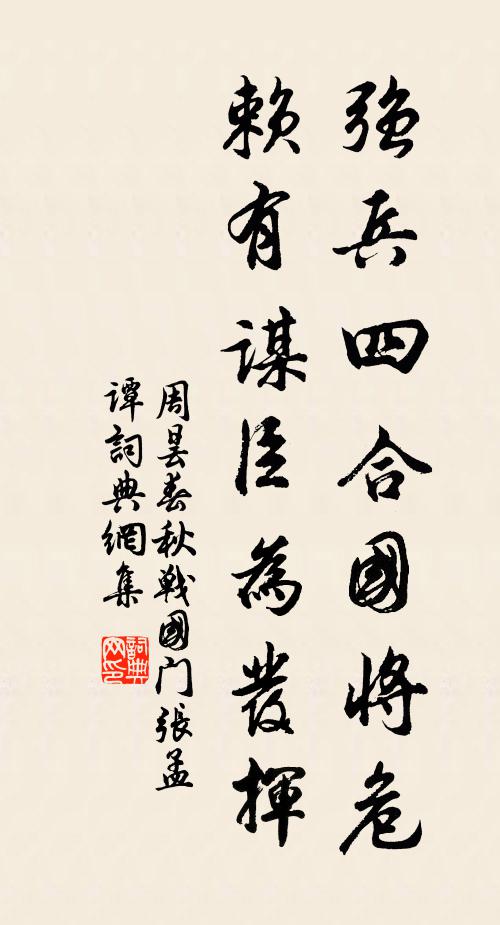 強兵四合國將危
賴有謀臣為發揮
周曇春秋戰國门張孟
譚詞典網集
詞典
网印